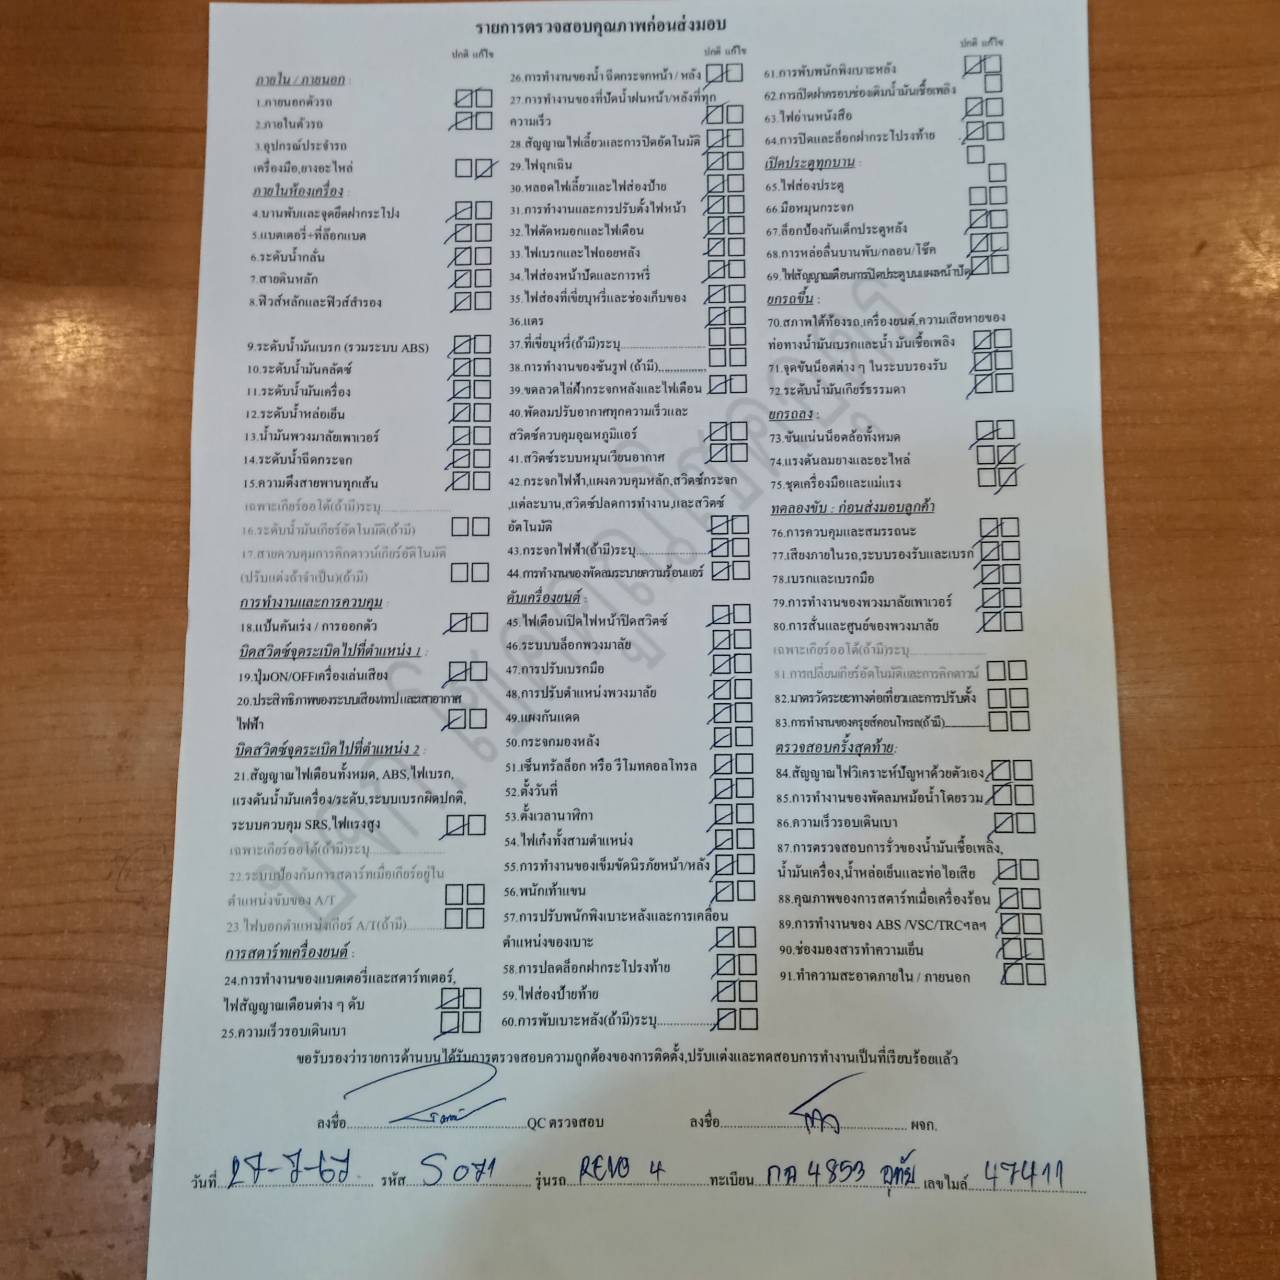 รายการตรวจสอบคุณภาพก่อนส่งมอบ
ปกติ แก้ไข
ภายใน / ภายนอก :
1.ภายนอกตัวรถ
2.ภายในตัวรถ
3.อุปกรณ์ประจำรถ
เครื่องมือ,ยางอะไหล่
ภายในห้องเครื่อง :
4.บานพับและจุดยึดฝากระโปง
5.แบตเตอรี่+ที่ล๊อกแบต
6.ระดับน้ำกลั่น
7.สายดินหลัก
8.ฟิวส์หลักและฟิวส์สำรอง
9.ระดับน้ำมันเบรก (รวมระบบ ABS)
10.ระดับน้ำมันคลัตช์
11.ระดับน้ำมันเครื่อง
12.ระดับน้ำหล่อเย็น
13.น้ำมันพวงมาลัยเพาเวอร์
14.ระดับน้ำฉีดกระจก
15.ความตึงสายพานทุกเส้น
เฉพาะเกียร์ออโต้(ถ้ามี)ระบุ
16.ระดับน้ำมันเกียร์อัตโนมัติ(ถ้ามี)
17.สายควบคุมการคิกดาวน์เกียร์อัติโนมัติ
(ปรับแต่งถ้าจำเป็น)(ถ้ามี)
การทำงานและการควบคุม :
18.แป้นคันเร่ง / การออกตัว
บิดสวิตซ์จุดระเบิดไปที่ตำแหน่ง 1 :
19.ปุ่มON/OFFเครื่องเล่นเสียง
20.ประสิทธิภาพของระบบเสียง/เทป และสาอากาศ
ไฟฟ้า
บิดสวิตซ์จุดระเบิดไปที่ตำแหน่ง 2 :
21.สัญญาณไฟเตือนทั้งหมด, ABS,ไฟเบรก,
แรงดันน้ำมันเครื่อง/ระดับ,ระบบเบรกผิดปกติ,
ระบบควบคุม SRS,ไฟแรงสูง
เฉพาะเกียร์ออโต้(ถ้ามี)ระบุ
22.ระบบป้องกันการสตาร์ทเมื่อเกียร์อยู่ใน
ตำแหน่งขับของ A/T
23.ไฟบอกตำแหน่งเกียร์ A/T(ถ้ามี)
การสตาร์ทเครื่องยนต์ :
24.การทำงานของแบตเตอรี่และสตาร์ทเตอร์,
ไฟสัญญาณเตือนต่าง ๆ ดับ
25.ความเร็วรอบเดินเบา
ปกติ แก้ไข
26.การทำงานของน้ำ ฉีดกระจกหน้า / หลัง
27.การทำงานของที่ปัดน้ำฝนหน้า/หลังที่ทุก
ความเร็ว
28.สัญญาณไฟเลี้ยวและการปิดอัตโนมัติ
29.ไฟฉุกเฉิน
30.หลอดไฟเลี้ยวและไฟส่องป้าย
31.การทำงานและการปรับตั้งไฟหน้า
32.ไฟตัดหมอกและไฟเตือน
33.ไฟเบรกและไฟถอยหลัง
34.ไฟส่องหน้าปัดและการหรี่
35.ไฟส่องที่เขี่ยบุหรี่และช่องเก็บของ
36.แตร
37.ที่เขี่ยบุหรี่(ถ้ามี)ระบุ
38.การทำงานของซันรูฟ (ถ้ามี)
39.ขดลวดไล่ฝ้ากระจกหลังและไฟเตือน
40.พัดลมปรับอากาศทุกความเร็วและ
สวิตซ์ควบคุมอุณหภูมิแอร์
41.สวิตซ์ระบบหมุนเวียนอากาศ
42.กระจกไฟฟ้า,แผงควบคุมหลัก,สวิตซ์กระจก
,แต่ละบาน,สวิตซ์ปลดการทำงาน,และสวิตซ์
อัตโนมัติ
43.กระจกไฟฟ้า(ถ้ามี)ระบุ
44.การทำงานของพัดลมระบายความร้อนแอร์
ดับเครื่องยนต์ :
45.ไฟเตือนเปิดไฟหน้าปิดสวิตซ์
46.ระบบบล็อกพวงมาลัย
47.การปรับเบรกมือ
48.การปรับตำแหน่งพวงมาลัย
49.แผงกันแดด
50.กระจกมองหลัง
51.เซ็นทรัลล็อก หรือ รีโมทคอลโทรล
52.ตั้งวันที่
53.ตั้งเวลานาฬิกา
54.ไฟเก๋งทั้งสามตำแหน่ง
55.การทำงานของเข็มขัดนิรภัยหน้า/หลัง
56.พนักเท้าแขน
57.การปรับพนักพิงเบาะหลังและการเคลื่อน
ตำแหน่งของเบาะ
58.การปลดล็อกฝากระโปรงท้าย
59.ไฟส่องป้ายท้าย
60.การพับเบาะหลัง(ถ้ามี)ระบุ
ปกติ แก้ไข
61.การพับพนักพิงเบาะหลัง
62.การเปิดฝาครอบช่องเติมน้ำมันเชื้อเพลิง
63.ไฟอ่านหนังสือ
64.การปิดและล็อกฝากระโปรงท้าย
เปิดประตูทุกบาน :
65.ไฟส่องประตู
66.มือหมุนกระจก
67.ล็อกป้องกันเด็กประตูหลัง
68.การหล่อลื่นบานพับ/กลอน/โช๊ค
69.ไฟสัญญาณเตือนการปิดประตู บนแผงหน้าปัด
ยกรถขึ้น :
70.สภาพใต้ท้องรถ,เครื่องยนต์,ความเสียหายของ
ท่อทางน้ำมันเบรกและน้ำ มันเชื้อเพลิง
71.จุดขันน็อตต่าง ๆ ในระบบรองรับ
72.ระดับน้ำมันเกียร์ธรรมดา
ยกรถลง :
73.ขันแน่นน็อตล้อทั้งหมด
74.แรงดันลมยางและอะไหล่
75.ชุดเครื่องมือและแม่แรง
ทดลองขับ : ก่อนส่งมอบลูกค้า
76.การควบคุมและสมรรถนะ
77.เสียงภายในรถ,ระบบรองรับและเบรก
78.เบรกและเบรกมือ
79.การทำงานของพวงมาลัยเพาเวอร์
80.การสั่นและศูนย์ของพวงมาลัย
เฉพาะเกียร์ออโต้(ถ้ามี)ระบุ
81.การเปลี่ยนเกียร์อัตโนมัติและการคิกดาวน์
82.มาตรวัดระยะทางต่อเที่ยวและการปรับตั้ง
83.การทำงานของครุยส์คอนโทรล(ถ้ามี)
ตรวจสอบครั้งสุดท้าย:
84.สัญญาณไฟวิเคราะห์ปัญหาด้วยตัวเอง
85.การทำงานของพัดลมหม้อน้ำโดยรวม
86.ความเร็วรอบเดินเบา
87.การตรวจสอบการรั่วของน้ำมันเชื้อเพลิง,
น้ำมันเครื่อง,น้ำหล่อเย็นและท่อไอเสีย
88.คุณภาพของการสตาร์ทเมื่อเครื่องร้อน
89.การทำงานของ ABS /VSC/TRCฯลฯ
90.ช่องมองสารทำความเย็น
91.ทำความสะอาดภายใน / ภายนอก
ขอรับรองว่ารายการด้านบนได้รับการตรวจสอบความถูกต้องของการติดตั้ง,ปรับแต่งและทดสอบการทำงานเป็นที่เรียบร้อยแล้ว
ลงชื่อ QC ตรวจสอบ ลงชื่อ ผจก.
วันที่ 27-7-67 รหัส S071 รุ่นรถ REVO 4 ทะเบียน กค 4853 อุทัย เลขไมล์ 47411